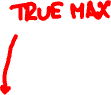 TRUE MAX